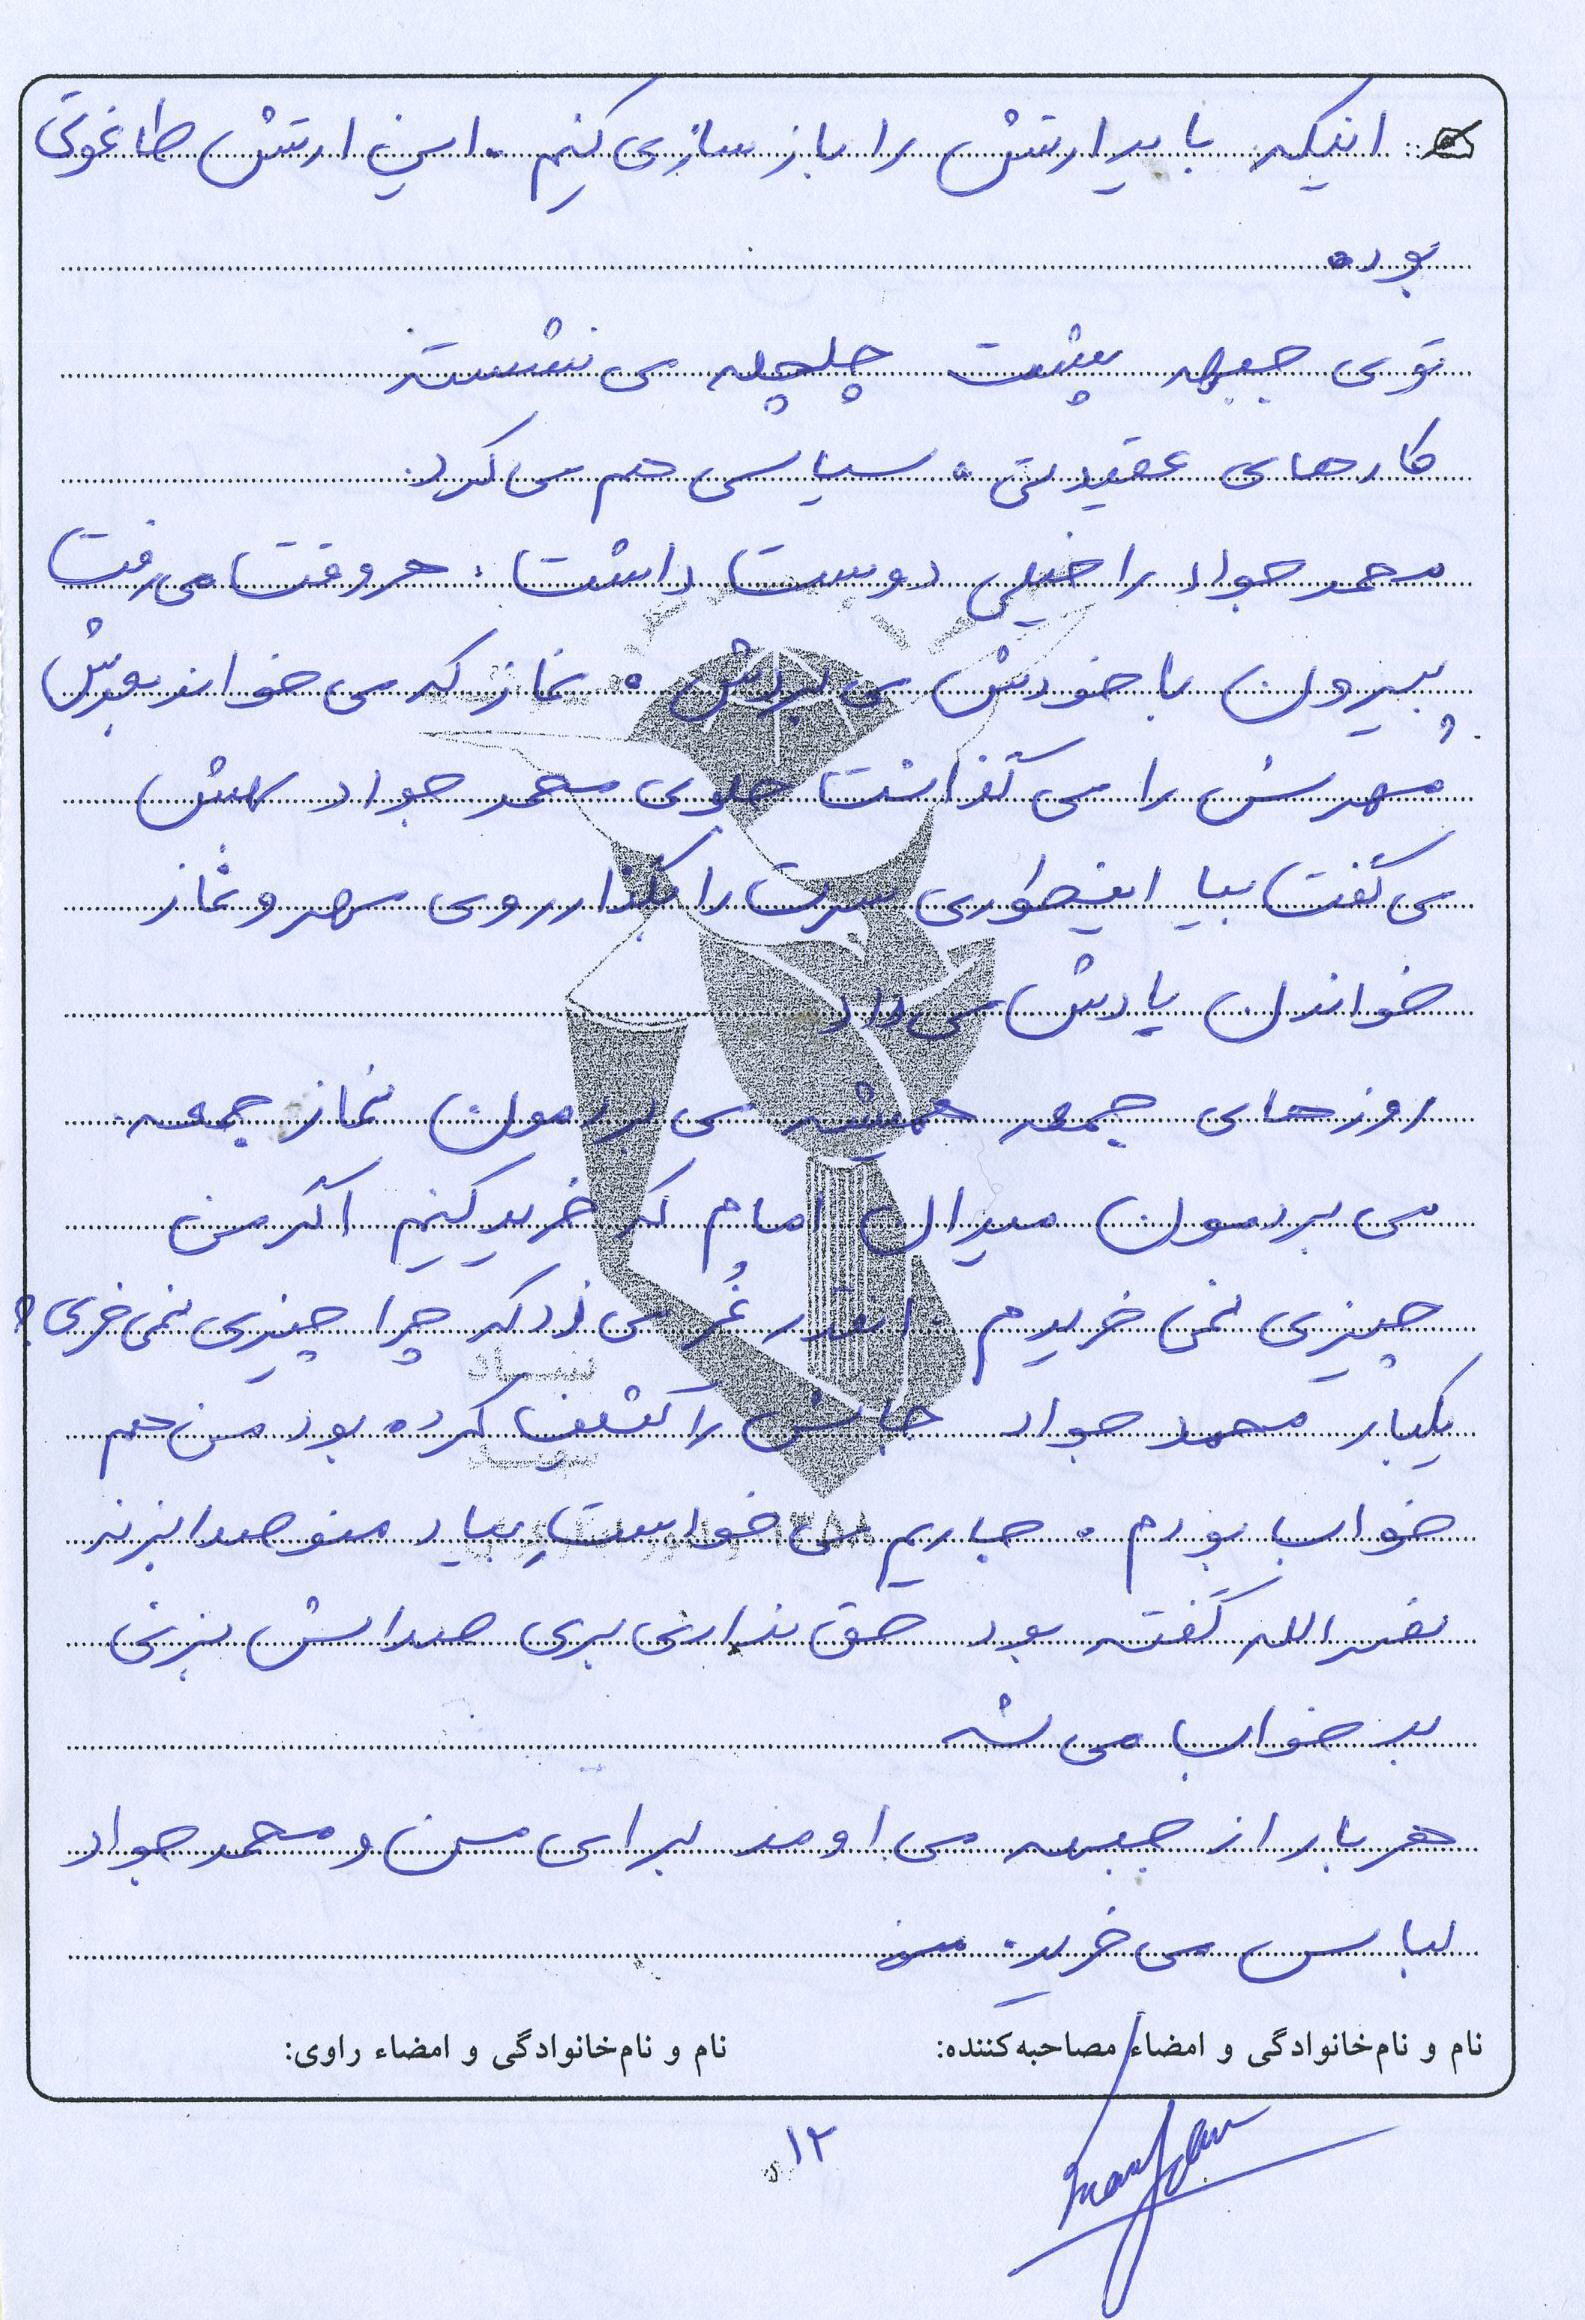 اینکه باید ارتش را بازسازی کنیم . این ارتش طاغوتی
بوده
توی جبهه پشت چلچله می نشسته
کارهای عقیدتی . سیاسی هم می کرد.
محمد جواد را خیلی دوست داشت . هر وقت می رفت
بیرون با خودش می بردش . نماز که می خواند
مهرش را می گذاشت جلوی محمد جواد بهش
می گفت بیا اینطوری سرت را بگذار روی مهر و نماز
خواندن یادش می داد
روزهای جمعه همیشه می بردمون نماز جمعه .
می بردمون میدان امام که خرید کنیم اگر من
چیزی نمی خریدم . انقدر غُر می زد که چرا چیزی نمی خری؟
یکبار محمد جواد جاش را کثیف کرده بود من هم
خواب بودم . جاریم می خواست بیاد منو صدا بزنه
نصراله گفته بود حق نداری بری صداش بزنی
بد خواب می شه
هر بار از جبهه می اومد برای من و محمد جواد
لباس می خرید .
نام و نام‌خانوادگی و امضاء مصاحبه‌کننده: نام و نام‌خانوادگی و امضاء راوی:
۱۲